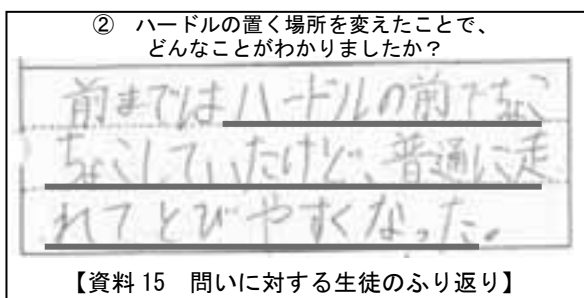 ② ハードルの置く場所を変えたことで、
どんなことがわかりましたか？
前まではハードルの前でちょこ
ちょこしていたけど、普通に走
れてとびやすくなった。
【資料 15　問いに対する生徒のふり返り】